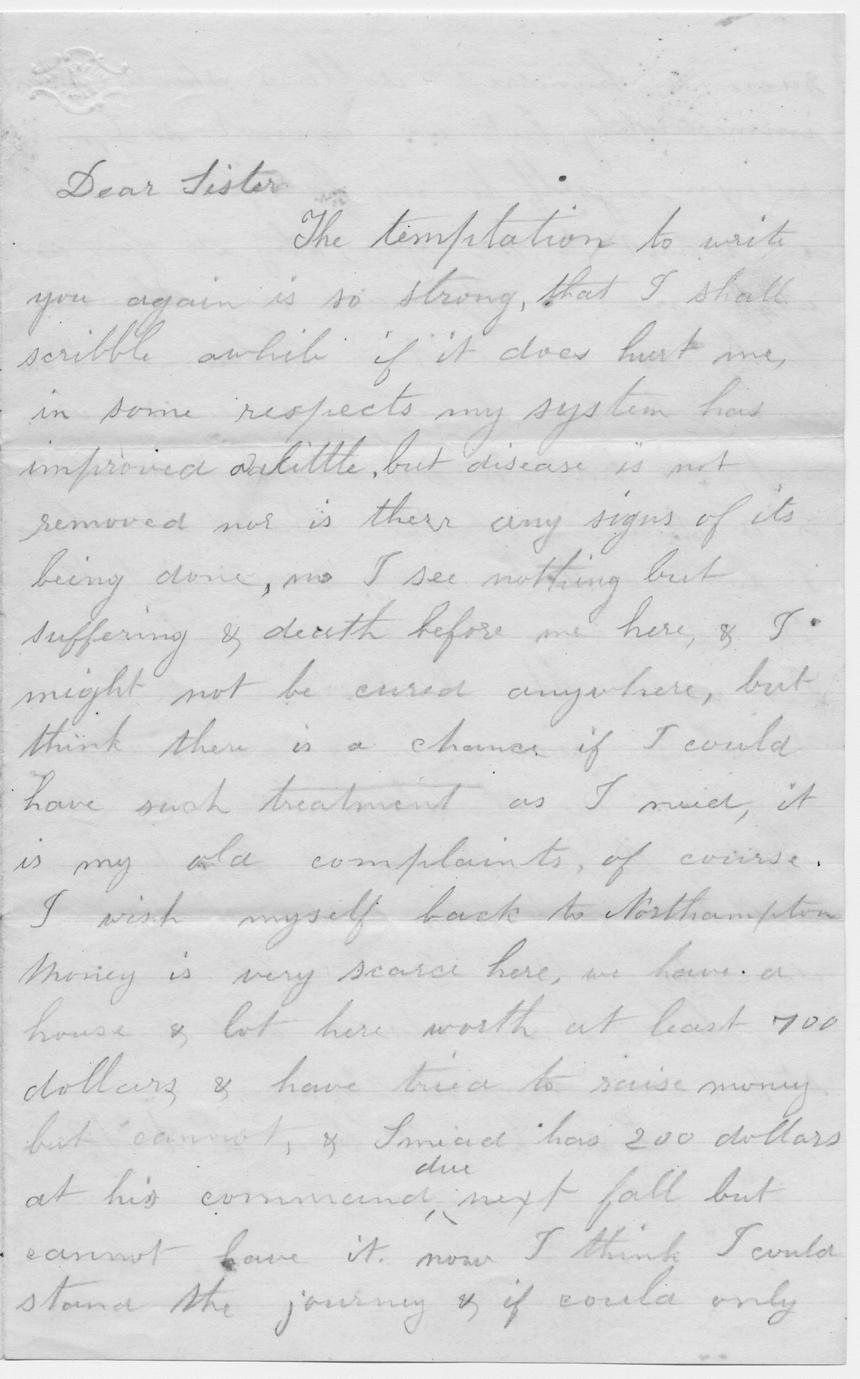 Dear Sister
The temptation to write
you again is so strong, that I shall
scribble awhile if it does hurt me,
in some respects my system has
improved a little, but disease is not
removed nor is there any signs of its
being done, no I see nothing but
suffering & death before me here, & I
might not be cured anywhere, but
think there is a chance if I could
have such treatment as I need, it
is my old complaints, of course.
I wish myself back to Northampton
Money is very scarce here, we have a
house & lot here worth at least 700
dollars & have tried to raise money
but cannot, & Smead has 200 dollars
due
at his command, next fall but
cannot have it. now I think I could
stand the journey & if could only